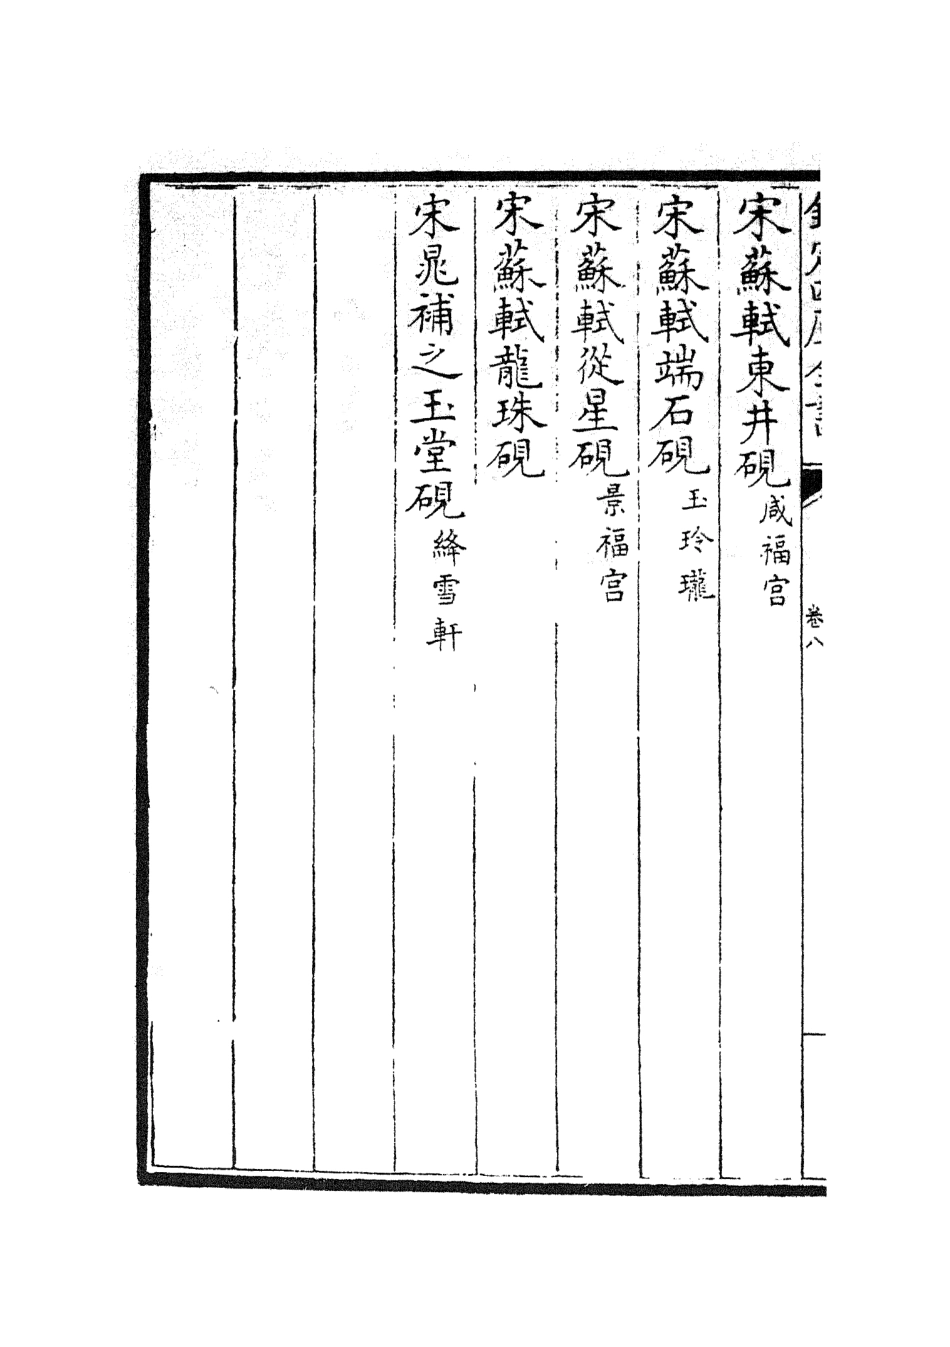 欽定四庫全書
卷八
宋蘇軾東井硯咸福宫
宋蘇軾端石硯玉玲瓏
宋蘇軾從星硯景福宫
宋蘇軾龍珠硯
宋晁補之玉堂硯絳雪軒